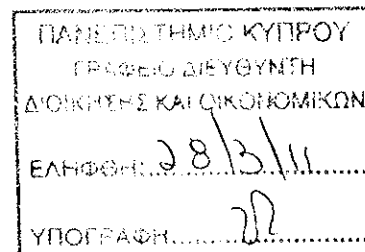 ΠΑΝΕΠΙΣΤΗΜΙΟ ΚΥΠΡΟΥ
ΓΡΑΦΕΙΟ ΔΙΕΥΘΥΝΤΗ
ΔΙΟΙΚΗΣΗΣ ΚΑΙ ΟΙΚΟΝΟΜΙΚΩΝ
ΕΛΗΦΘΗ: 28/3/11
ΥΠΟΓΡΑΦΗ